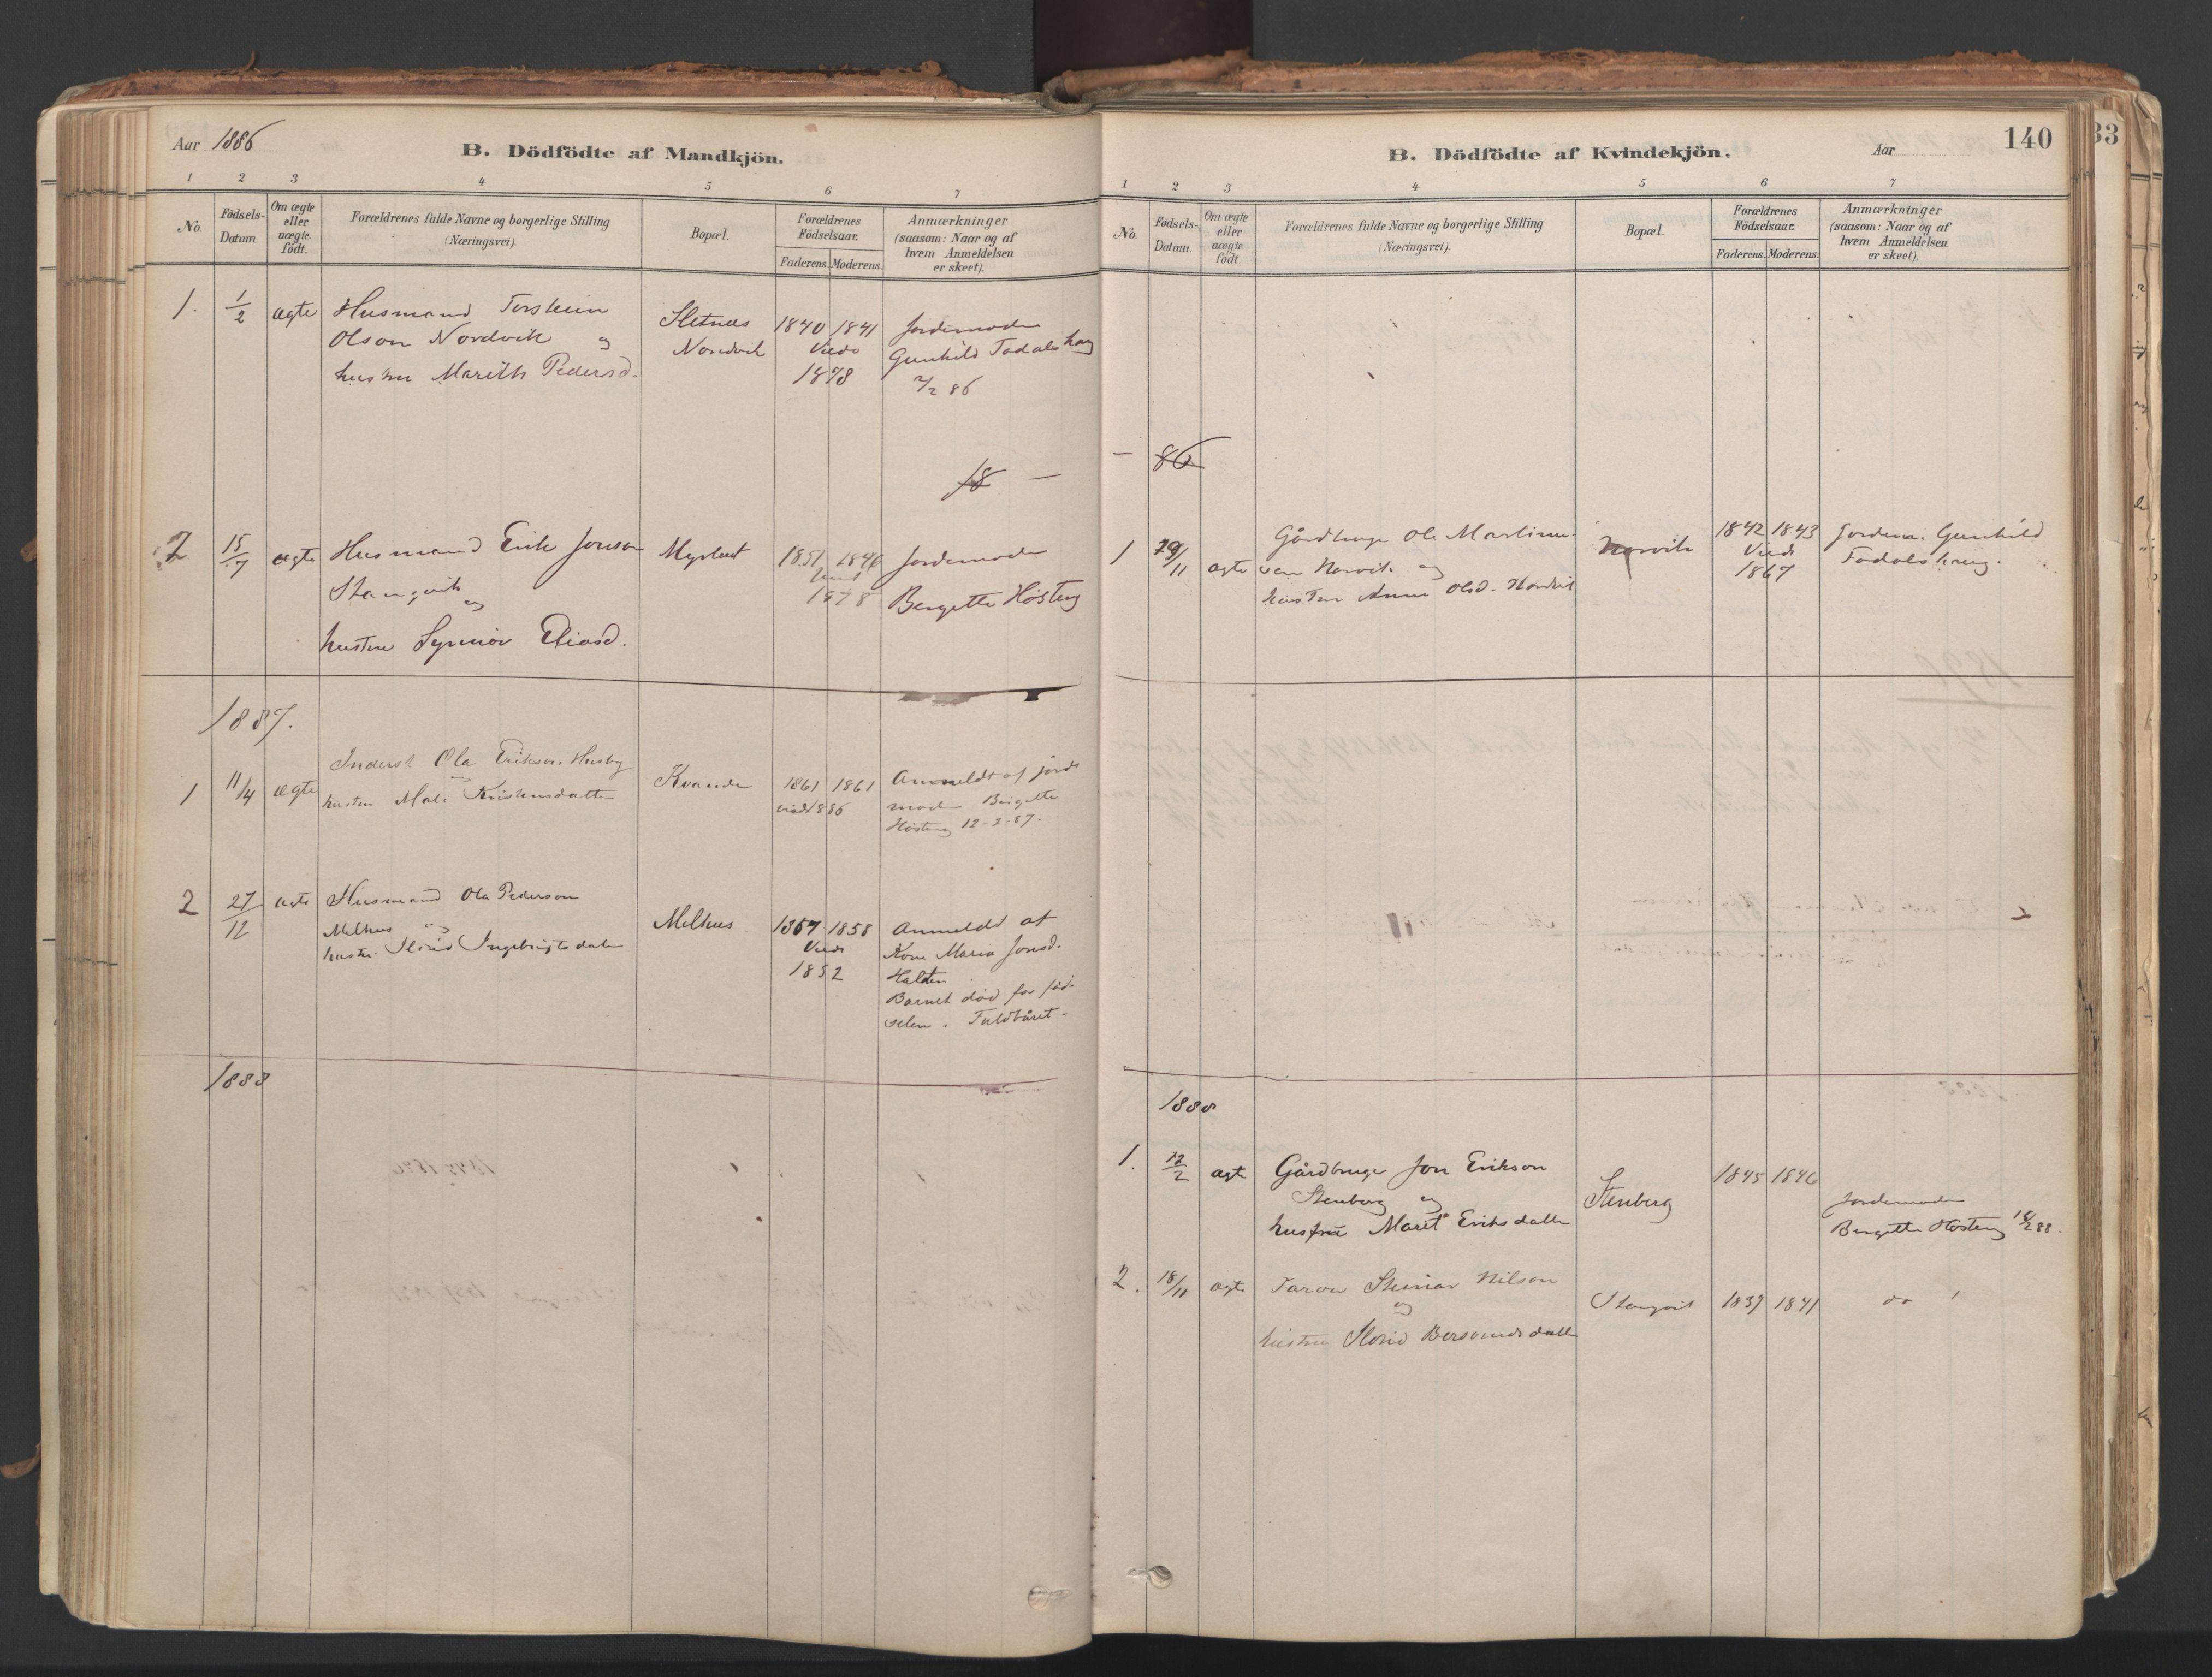 Aar 1886
B. Dödfödte af Mandkjön.
1 2 3 4 5 6 7
No.
Födsels-Datum.
Om ægte eller uægte født.
Forældrenes fulde Navne og borgerlige Stilling
(Næringsvei)
Bopæl.
Forældrenes Födselsaar.
Faderens. Moderens.
Anmærkninger
(saasom: Naar og af
hvem Anmeldelsen
er skeet).
1. 1/2 ægte Husmand Torstein
Olson Nordvik og
hustru Marith Pedersd.
Nordvik
1840 1841
Viede
1878
Jordemoder
Gunhild Todalshaug
2/2 86
18 —
2 15/7 ægte Husmand Erik Jonson
Stangvik
og
hustru Synnöv Eliasd.
1851 1846
1878
Jordemoder
Bergette Høsteng
1887.
1 11/4 ægte Inderst Ola Erikson Husby
og
hustru Mali Kristensdatter
Kvande
1861 1861
viede 1886
Anmeldt af jorde
moder Birgitte
Høsteng 12-2-87.
2 27/12 ægte Husmand Ola Pederson
Melhus og
hustru Ingebrigtsdatter
Melhus
1857 1858
Viede
1852
Anmeldt af
Kone Maren Jonsd.
Halten
Barnet död før föd-
selen. Fuldbåret.
1888
B. Dödfödte af Kvindekjön.
Aar
140
33
1 2 3 4 5 6 7
No.
Födsels-Datum.
Om ægte eller uægte født.
Forældrenes fulde Navne og borgerlige Stilling
(Næringsvei).
Bopæl.
Forældrenes Födselsaar.
Faderens. Moderens.
Anmærkninger
(saasom: Naar og af
hvem Anmeldelsen
er skeet).
— 86
1 29/11 ægte Gårdbruger Ole Martinus
Norvik og
hustru Anne Olsd. Nordvik
Norvik
1842 1843
Viede
1867
Jordem. Gunhild
Todalshaug.
1888
1. 12/2 ægte Gårdbruger Jon Erikson
Stenberg og
hustru Maret Eriksdatter
Stenberg
1845 1846
Jordemoder
Bergette Høsteng 18/2 88.
2. 18/11 ægte Steinar Nilson
og
hustru Bersvendsdatter
Stangvik
1839 1841
do